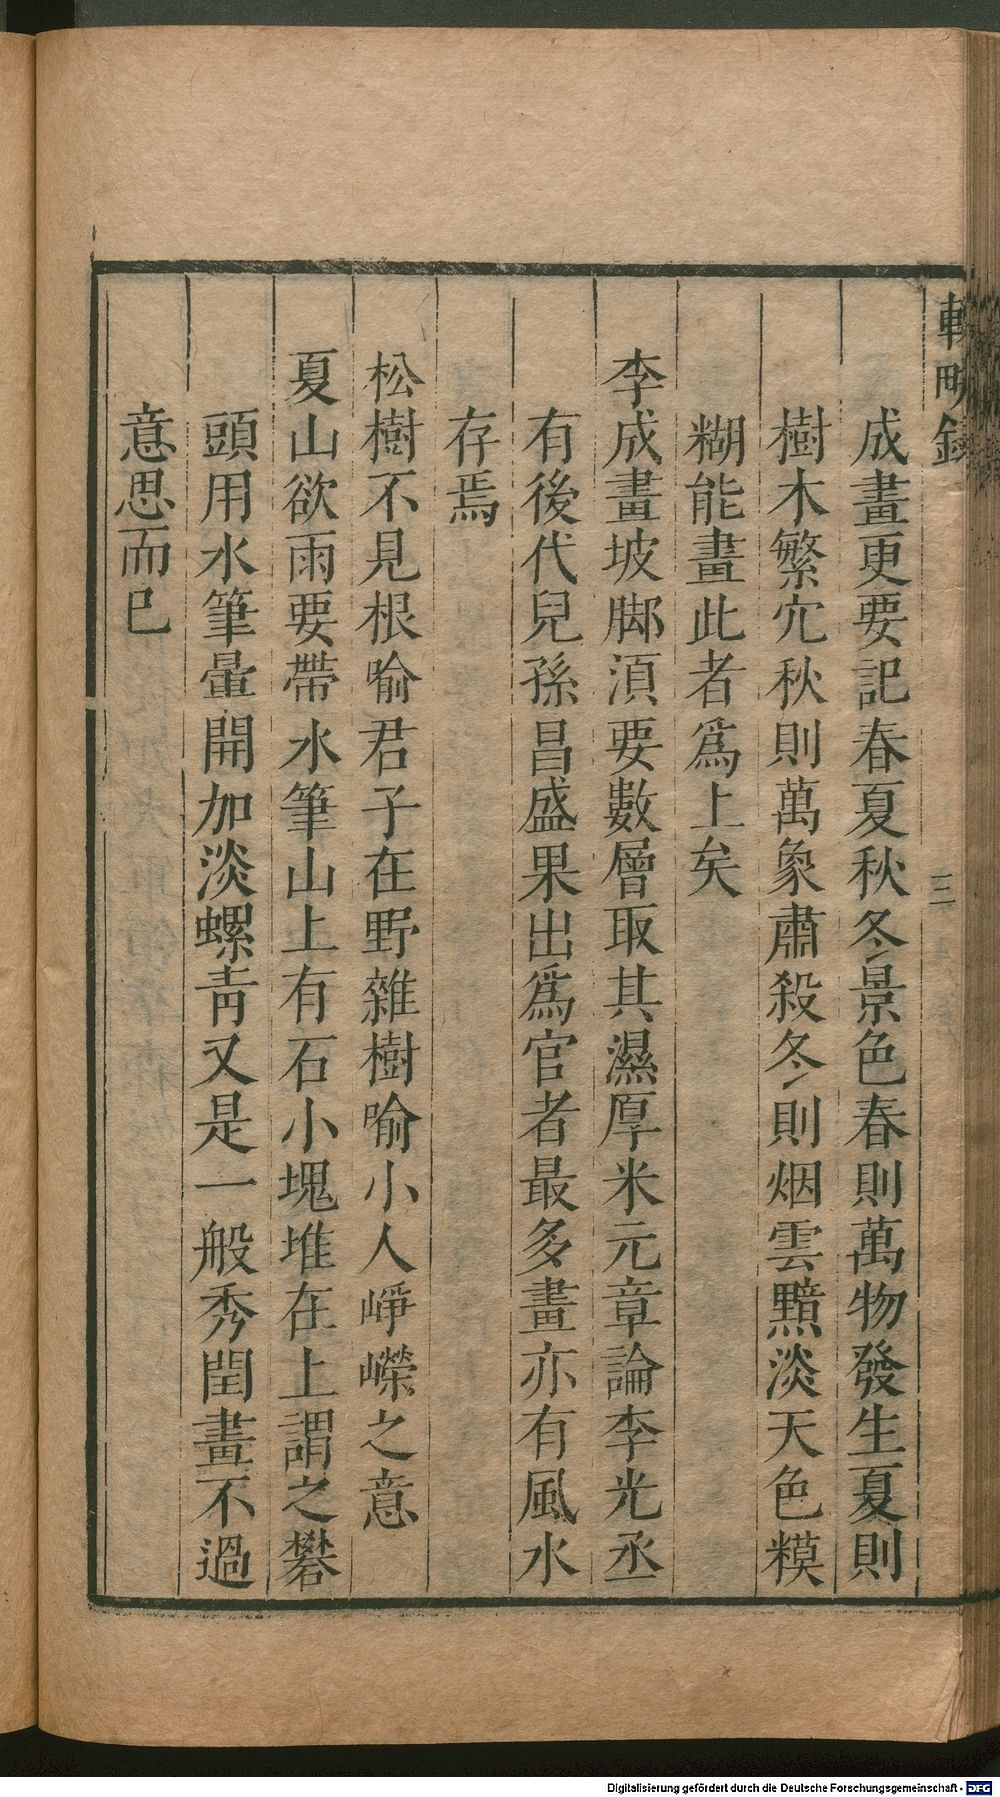 輟畊錄
三
成畫更要記春夏秋冬景色春則萬物發生夏則
樹木繁冗秋則萬象肅殺冬則烟雲黯淡天色糢
糊能畫此者爲上矣
李成畫坡脚湏要數層取其濕厚米元章論李光丞
有後代兒孫昌盛果出爲官者最多畫亦有風水
存焉
松樹不見根喻君子在野雜樹喻小人崢嶸之意
夏山欲雨要帶水筆山上有石小塊堆在上謂之礬
頭用水筆暈開加淡螺青又是一般秀閏畫不過
意思而巳
Digitalisierung gefördert durch die Deutsche Forschungsgemeinschaft - DFG